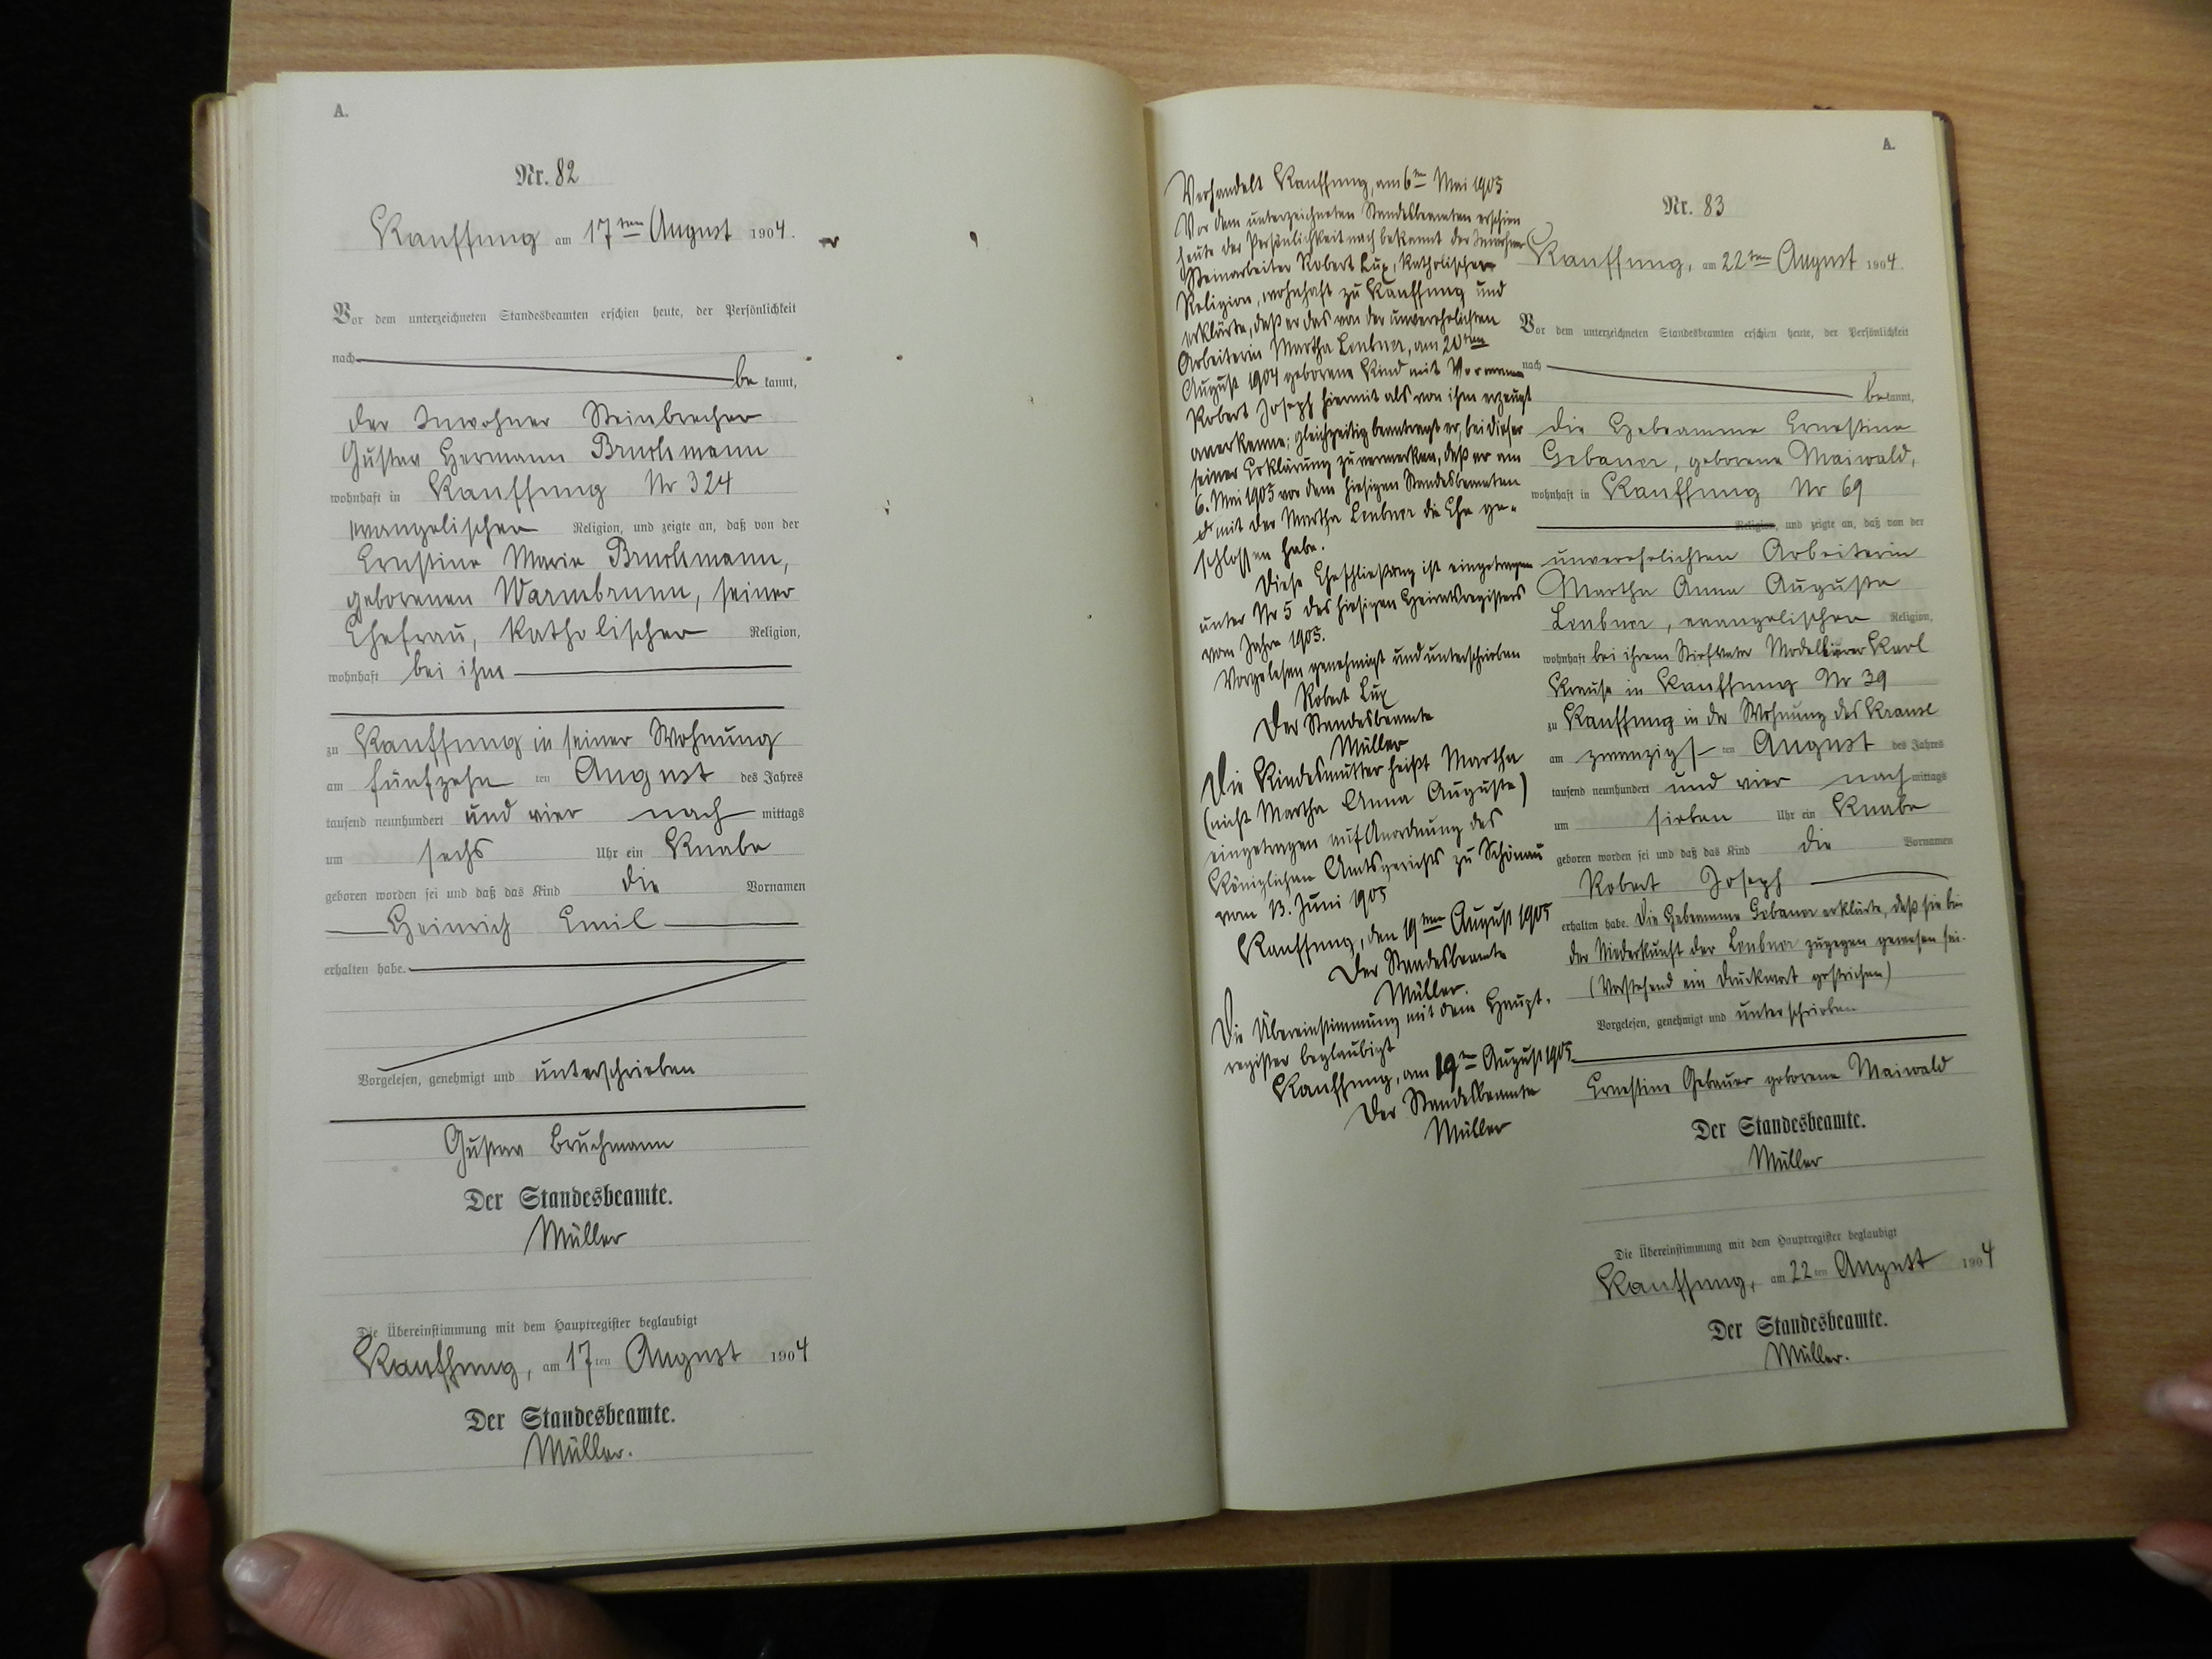 A.
Nr. 82
Kauffung am 17ten August 1904.
Vor dem unterzeichneten Standesbeamten erschien heute, der Persönlichkeit
nach
be kannt,
der Inwohner Steinbrecher
Gustav Hermann Bruchmann
wohnhaft in Kauffung Nr 324
evangelischer Religion, und zeigte an, daß von der
Ernstine Marie Bruchmann,
geborenen Warmbrunn, seiner
Ehefrau, katholischer Religion,
wohnhaft bei ihm
zu Kauffung in seiner Wohnung
am fünfzehn ten August des Jahres
tausend neunhundert und vier nach mittags
um sechs Uhr ein Knabe
geboren worden sei und daß das Kind die Vornamen
Heinrich Emil
erhalten habe.
Vorgelesen, genehmigt und unterschrieben
Gustav Bruchmann
Der Standesbeamte.
Müller
Die Übereinstimmung mit dem Hauptregister beglaubigt
Kauffung, am 17ten August 1904
Der Standesbeamte.
Müller.
Verhandelt Kauffung, am 6ten Mai 1905
Vor dem unterzeichneten Standesbeamten erschien
heute der Persönlichkeit nach bekannt der Inwohner
Steinarbeiter Robert Lux, katholischer
Religion, wohnhaft zu Kauffung und
erklärte, daß er das von der unverehelichten
Arbeiterin Martha Leubner, am 20ten
August 1904 geborene Kind mit Vornamen
Robert Joseph hiermit als von ihm erzeugt
anerkenne; gleichzeitig beantragt er, bei dieser
seiner Erklärung zu vermerken, daß er am
6. Mai 1905 vor dem hiesigen Standesbeamten
mit der Martha Leubner die Ehe ge-
schlossen habe.
Diese Eheschließung ist eingetragen
unter Nr 5 des hiesigen Heiratsregisters
vom Jahre 1905.
Vorgelesen genehmigt und unterschrieben
Robert Lux
Der Standesbeamte
Müller
Die Kindesmutter heißt Martha
(nicht Martha Anna Auguste)
eingetragen auf Anordnung des
Königlichen Amtsgerichts zu Schönau
vom 13. Juni 1905
Kauffung, den 19ten August 1905
Der Standesbeamte
Müller.
Die Übereinstimmung mit dem Haupt-
register beglaubigt
Kauffung, am 19ten August 1905
Der Standesbeamte
Müller
A.
Nr. 83
Kauffung, am 22ten August 1904.
Vor dem unterzeichneten Standesbeamten erschien heute, der Persönlichkeit
nach
bekannt,
die Hebeamme Ernestine
Gebauer, geborene Maiwald,
wohnhaft in Kauffung Nr 69
Religion, und zeigte an, daß von der
unverehelichten Arbeiterin
Martha Anna Auguste
Leubner, evangelischer Religion,
wohnhaft bei ihrem Stiefvater Modelleurer Karl
Krause in Kauffung Nr 39
zu Kauffung in der Wohnung des Krause
am zwanzigsten August des Jahres
tausend neunhundert und vier nach mittags
um sieben Uhr ein Knabe
geboren worden sei und daß das Kind die Vornamen
Robert Joseph
erhalten habe. Die Hebeamme Gebauer erklärte, daß sie bei
der Niederkunft der Leubner zugegen gewesen sei.
(Vorstehend ein Druckwort gestrichen)
Vorgelesen, genehmigt und unterschrieben
Ernestine Gebauer geborene Maiwald
Der Standesbeamte.
Müller
Die Übereinstimmung mit dem Hauptregister beglaubigt
Kauffung, am 22ten August 1904
Der Standesbeamte.
Müller.